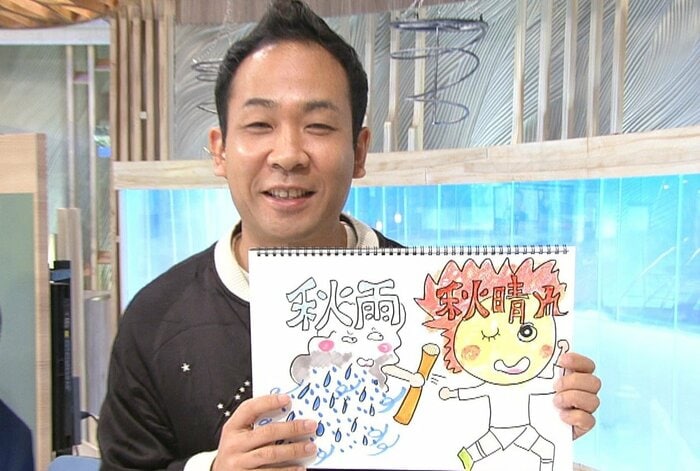 秋雨
秋晴れ